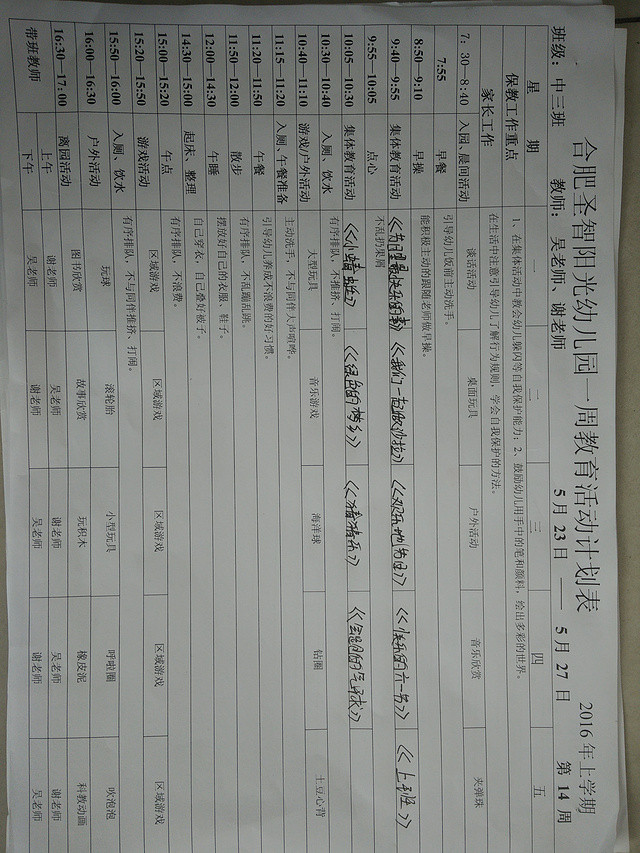 合肥圣智阳光幼儿园一周教育活动计划表
2016 年上学期
班级：中三班 教师：吴老师、谢老师 5 月 23 日 —— 5 月 27 日 第 14 周
星 期 一 二 三 四 五
保教工作重点 1、在集体活动中教会幼儿躲闪等自我保护能力；2、鼓励幼儿用手中的笔和颜料，绘出多彩的世界。
家长工作 在生活中注意引导幼儿了解行为规则，学会自我保护的方法。
7：30—8:40 入园、晨间活动 谈话活动 桌面玩具 户外活动 音乐欣赏 夹弹珠
7:55 早餐 引导幼儿饭前主动洗手。
8:50—9:10 早操 能积极主动的跟随老师做早操。
9:40—9:55 集体教育活动 《我们一起做沙拉》 《欢乐地节日》 《快乐的六一节》 《上班族》
9:55—10:05 点心 不乱扔果屑
10:05—10:30 集体教育活动 《小蜻蜓》 《绿色的梦乡》 《猜猜乐》 《会跑的气球》
10:30—10:40 入厕、饮水 有序排队，不推挤、打闹。
10:40—11:10 游戏/户外活动 大型玩具 音乐游戏 海洋球 钻圈 土豆心背
11:15—11:20 入厕，午餐准备 主动洗手，不与同伴大声喧哗。
11:20—11:50 午餐 引导幼儿养成不浪费的好习惯。
11:50—12:00 散步 有序排队，不乱蹦乱跳。
12:00—14:30 午睡 摆放好自己的衣服、鞋子。
14:30—15:00 起床、整理 自己穿衣，自己叠好被子。
15:00—15:20 午点 有序排队，不浪费。
15:20—15:50 游戏活动 区域游戏 区域游戏 区域游戏 区域游戏 区域游戏
15:50—16:00 入厕、饮水 有序排队、不与同伴推挤、打闹。
16:00—16:30 户外活动 玩球 滚轮胎 小型玩具 呼啦圈 吹泡泡
16:30—17：00 离园活动 图书欣赏 故事欣赏 玩积木 橡皮泥 科教动画
带班教师 上午 谢老师 吴老师 谢老师 吴老师 谢老师
下午 吴老师 谢老师 吴老师 谢老师 吴老师